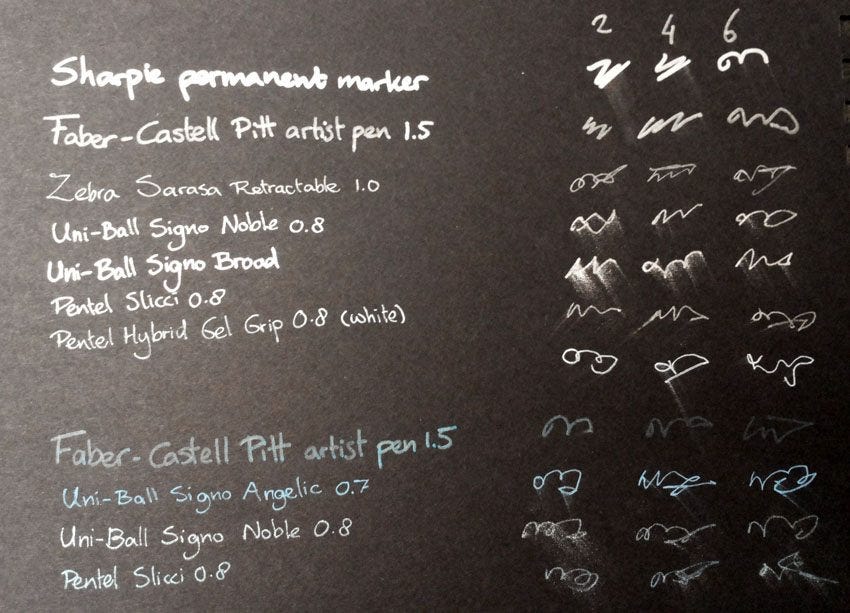 2 4 6
Sharpie permanent marker
Faber-Castell Pitt artist pen 1.5
Zebra Sarasa Retractable 1.0
Uni-Ball Signo Noble 0.8
Uni-Ball Signo Broad
Pentel Slicci 0.8
Pentel Hybrid Gel Grip 0.8 (white)
Faber-Castell Pitt artist pen 1.5
Uni-Ball Signo Angelic 0.7
Uni-Ball Signo Noble 0.8
Pentel Slicci 0.8